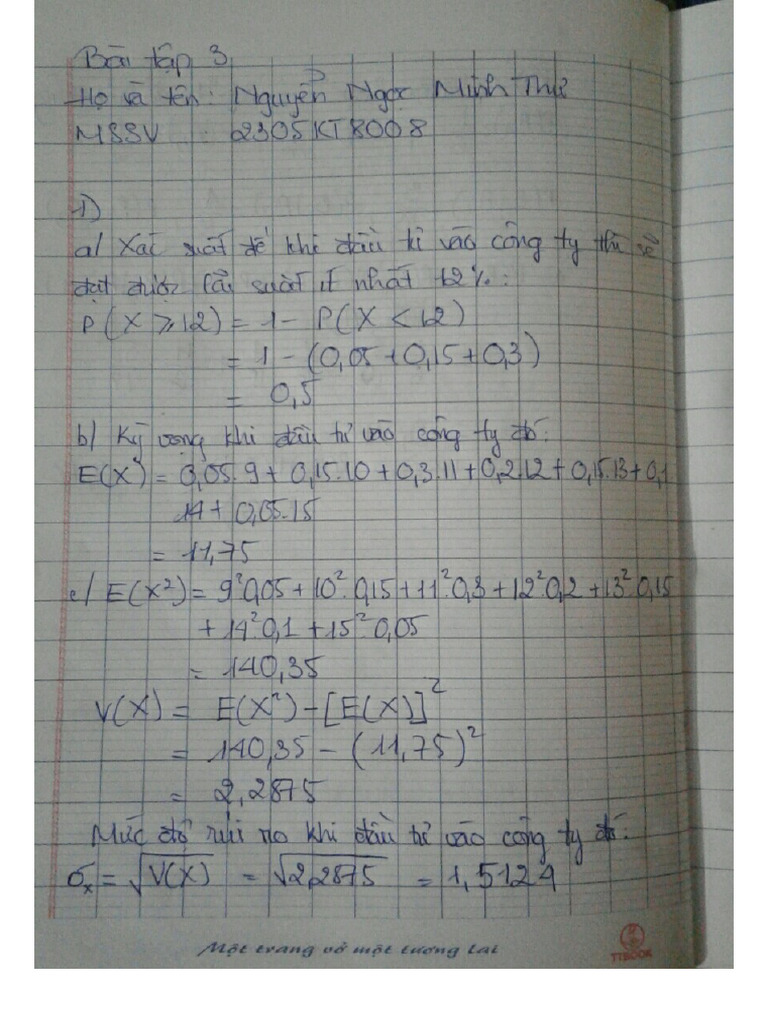 Bài tập 3
Họ và tên: Nguyễn Ngọc Minh Thư
MSSV : 2305KT8008
1)
a/ Xác suất để khi đầu tư vào công ty thì sẽ
đạt được lãi suất ít nhất 12%:
P(X ≥ 12) = 1 - P(X < 12)
= 1 - (0,05 + 0,15 + 0,3)
= 0,5
b/ Kỳ vọng khi đầu tư vào công ty đó:
E(X) = 0,05.9 + 0,15.10 + 0,3.11 + 0,2.12 + 0,15.13 + 0,1
14 + 0,05.15
= 11,75
c/ E(X²) = 9².0,05 + 10².0,15 + 11².0,3 + 12².0,2 + 13².0,15
+ 14².0,1 + 15².0,05
= 140,35
V(X) = E(X²) - [E(X)]²
= 140,35 - (11,75)²
= 2,2875
Mức độ rủi ro khi đầu tư vào công ty đó:
σx = √V(X) = √2,2875 = 1,5124
Một trang vở một tương lai
TTBOOK